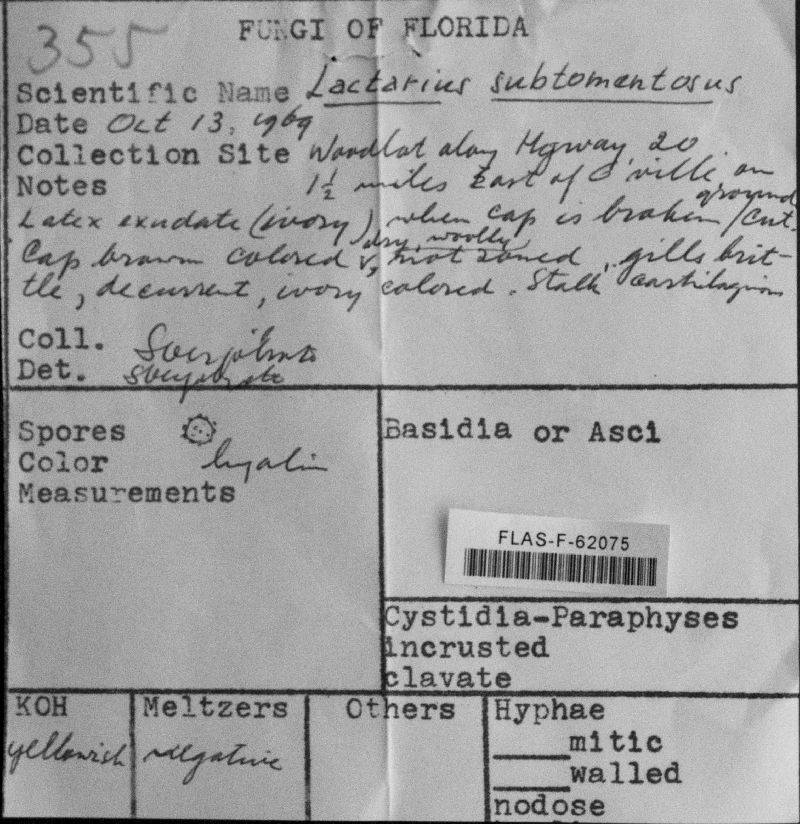 355
FUNGI OF FLORIDA
Scientific Name Lactarius subtomentosus
Date Oct 13, 1969
Collection Site Woodlot along Hgway 20
Notes 1½ miles East of G'ville, on ground
Latex exudate (ivory) when cap is broken/cut.
Cap brown colored, dry, woolly, not zoned, gills brit-
tle, decurrent, ivory colored. Stalk cartilaginous
Coll.
Det.
Spores
Color hyalin
Measurements
Basidia or Asci
FLAS-F-62075
Cystidia-Paraphyses
incrusted
clavate
KOH
yellowish
Meltzers
negative
Others
Hyphae
_____mitic
_____walled
nodose